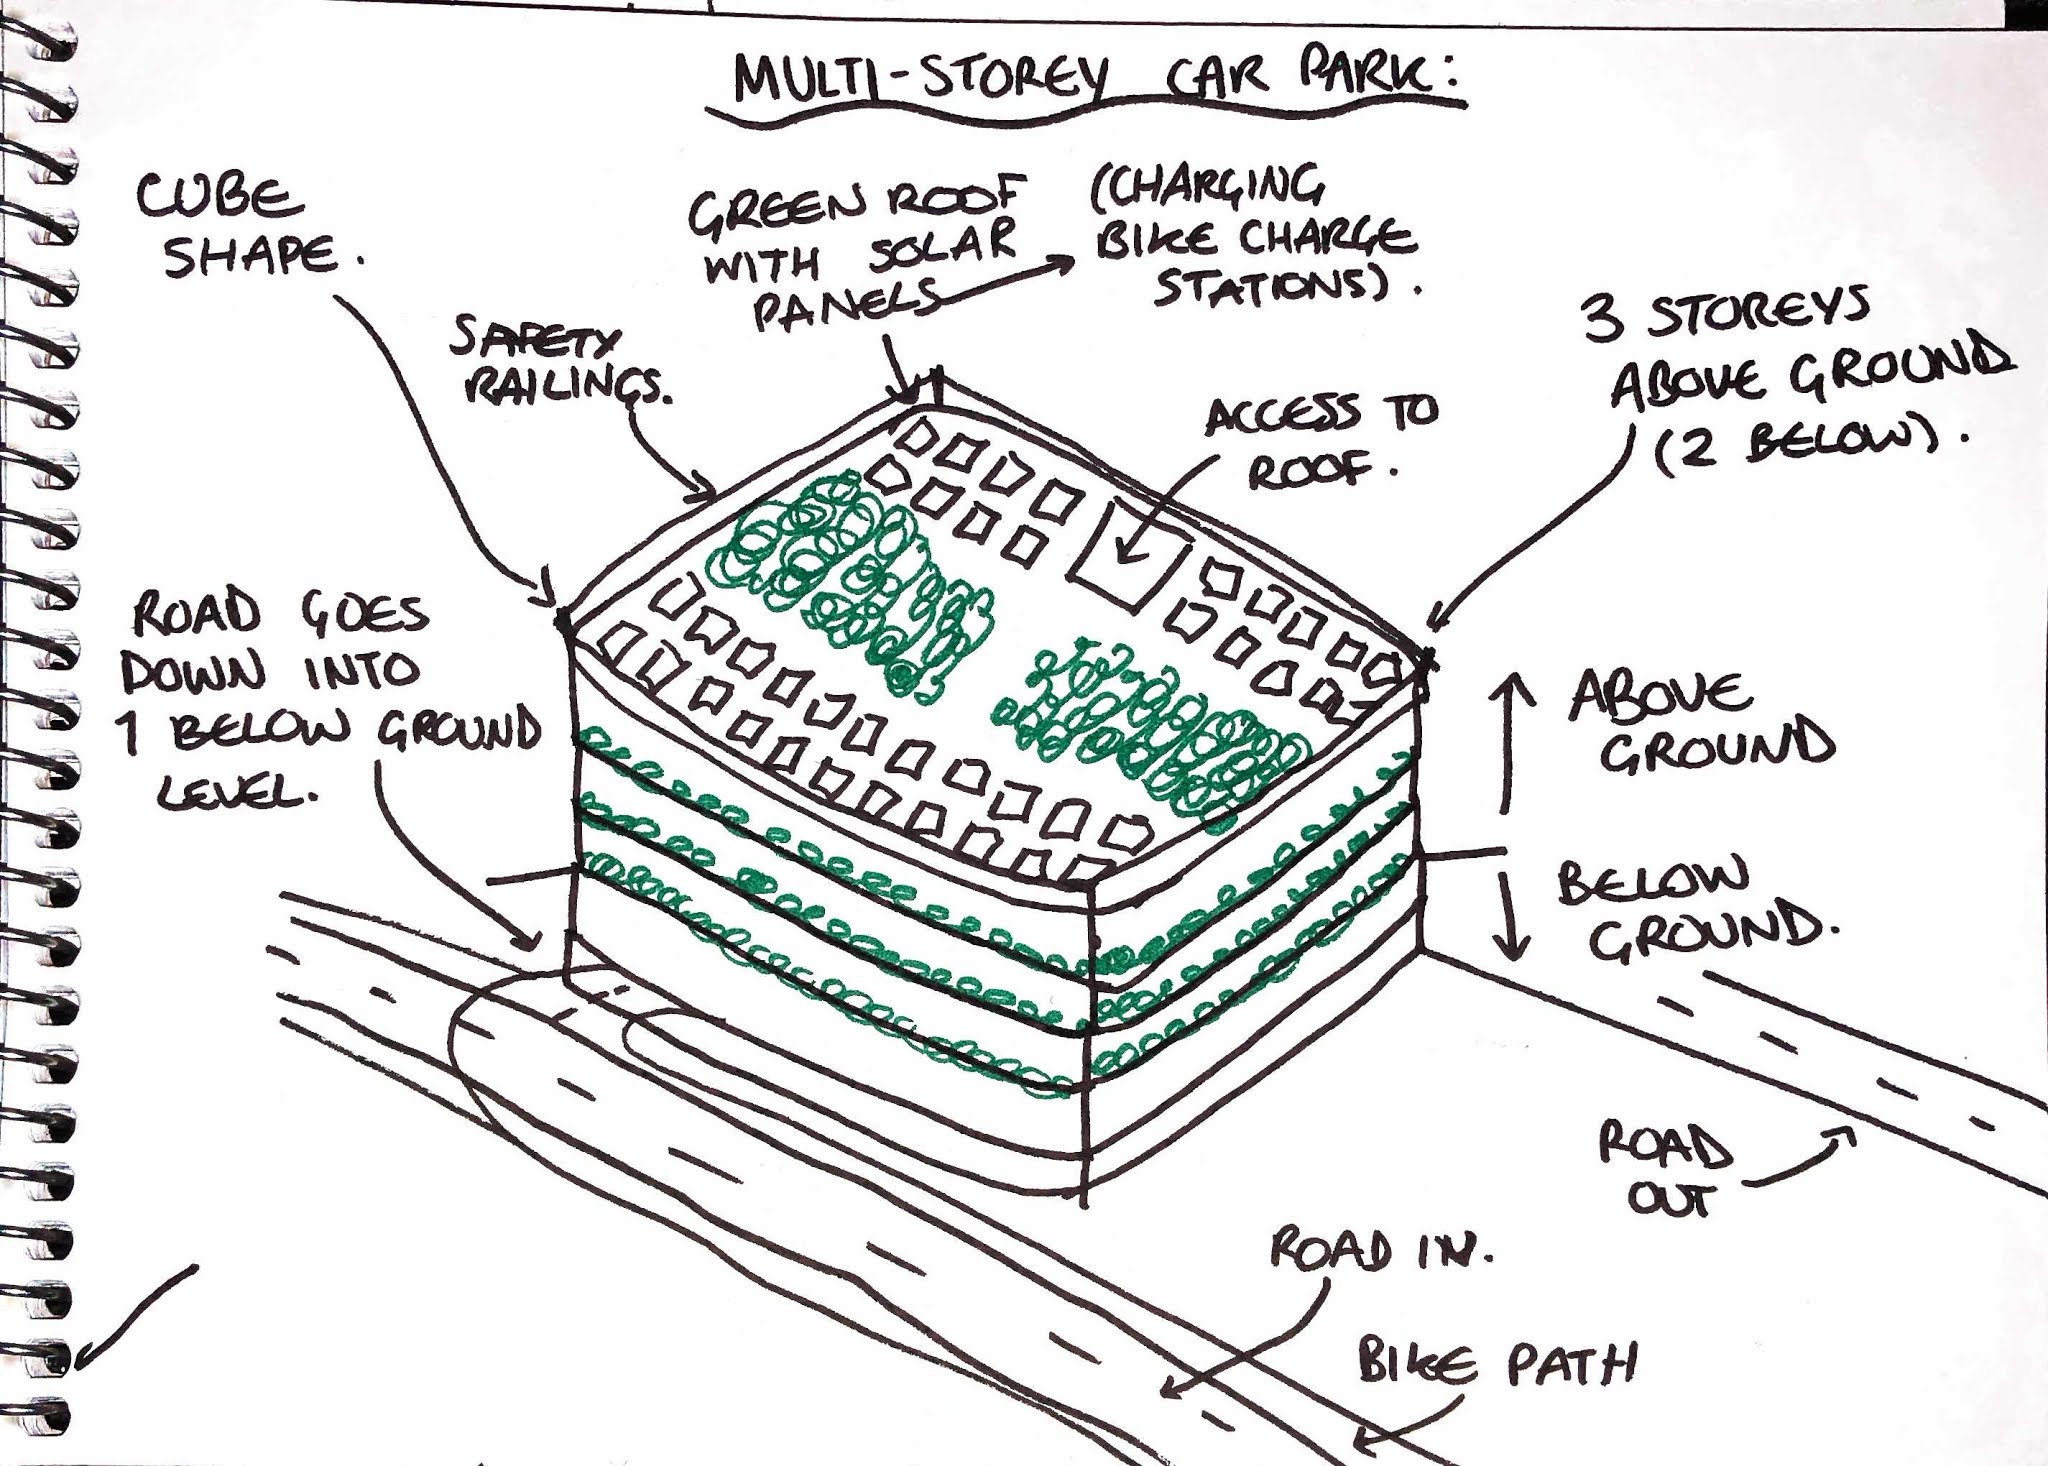 MULTI-STOREY CAR PARK:
CUBE
SHAPE.
GREEN ROOF
WITH SOLAR
PANELS
(CHARGING
BIKE CHARGE
STATIONS).
SAFETY
RAILINGS.
ACCESS TO
ROOF.
3 STOREYS
ABOVE GROUND
(2 BELOW).
ROAD GOES
DOWN INTO
1 BELOW GROUND
LEVEL.
ABOVE
GROUND
BELOW
GROUND.
ROAD
OUT
ROAD IN.
BIKE PATH